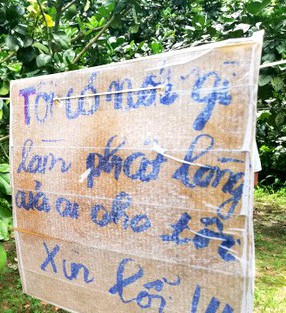 Tôi có nói gì
làm phật lòng
của ai cho tôi
Xin lỗi !!!